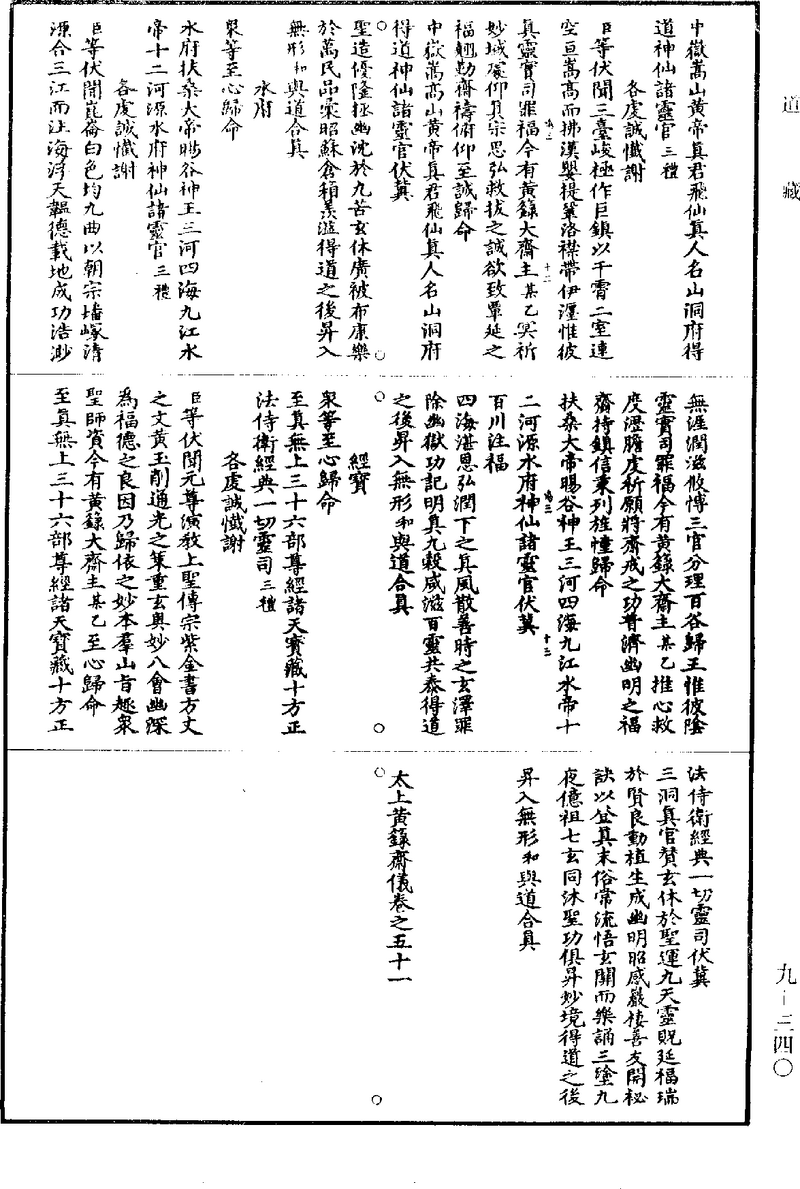 道藏
中嶽嵩山黃帝真君飛仙真人名山洞府得
道神仙諸靈官三禮
各虔誠懺謝
臣等伏聞三臺峻極作巨鎮以干霄二室連
空亘嵩高而拂漢嬰提鞏洛襟帶伊瀍惟彼
真靈實司罪福今有黃籙大齋主某乙冥祈
妙域虔仰真宗思弘救拔之誠欲致覃延之
福翹勤齋禱俯仰至誠歸命
中嶽嵩高山黃帝真君飛仙真人名山洞府
得道神仙諸靈官伏冀
聖造優隆拯幽沈於九苦玄休廣被布康樂
於萬民品彙昭蘇倉箱羨溢得道之後昇入
無形和與道合真
水府
眾等至心歸命
水府扶桑大帝暘谷神王三河四海九江水
帝十二河源水府神仙諸靈官三禮
各虔誠懺謝
臣等伏聞崑崙白色均九曲以朝宗墦嶓濬
源合三江而注海浮天韞德載地成功浩渺
無涯潤滋攸愽三官分理百谷歸王惟彼陰
靈實司罪福今有黃籙大齋主某乙推心救
度瀝膽虔祈願將齋戒之功普濟幽明之福
齋持鎮信東列旌幢歸命
扶桑大帝暘谷神王三河四海九江水帝十
二河源水府神仙諸靈官伏冀
百川注福
四海湛恩弘潤下之真風散善時之玄澤罪
除幽獄功記明真九穀咸滋百靈共泰得道
之後昇入無形和與道合真
經寶
眾等至心歸命
至真無上三十六部尊經諸天寶藏十方正
法侍衛經典一切靈司三禮
各虔誠懺謝
臣等伏聞元尊演教上聖傳宗紫金書方丈
之文黃玉削通光之策重玄奧妙八會幽深
為福德之良因乃歸依之妙本羣山旨趣眾
聖師資今有黃籙大齋主某乙至心歸命
至真無上三十六部尊經諸天寶藏十方正
法侍衛經典一切靈司伏冀
三洞真官贊玄休於聖運九天靈貺延福瑞
於賢良動植生成幽明昭感巖棲善友開祕
訣以登真末俗常流悟玄關而樂誦三塗九
夜億祖七玄同沐聖功俱昇妙境得道之後
昇入無形和與道合真
太上黃籙齋儀卷之五十一
九－三四〇